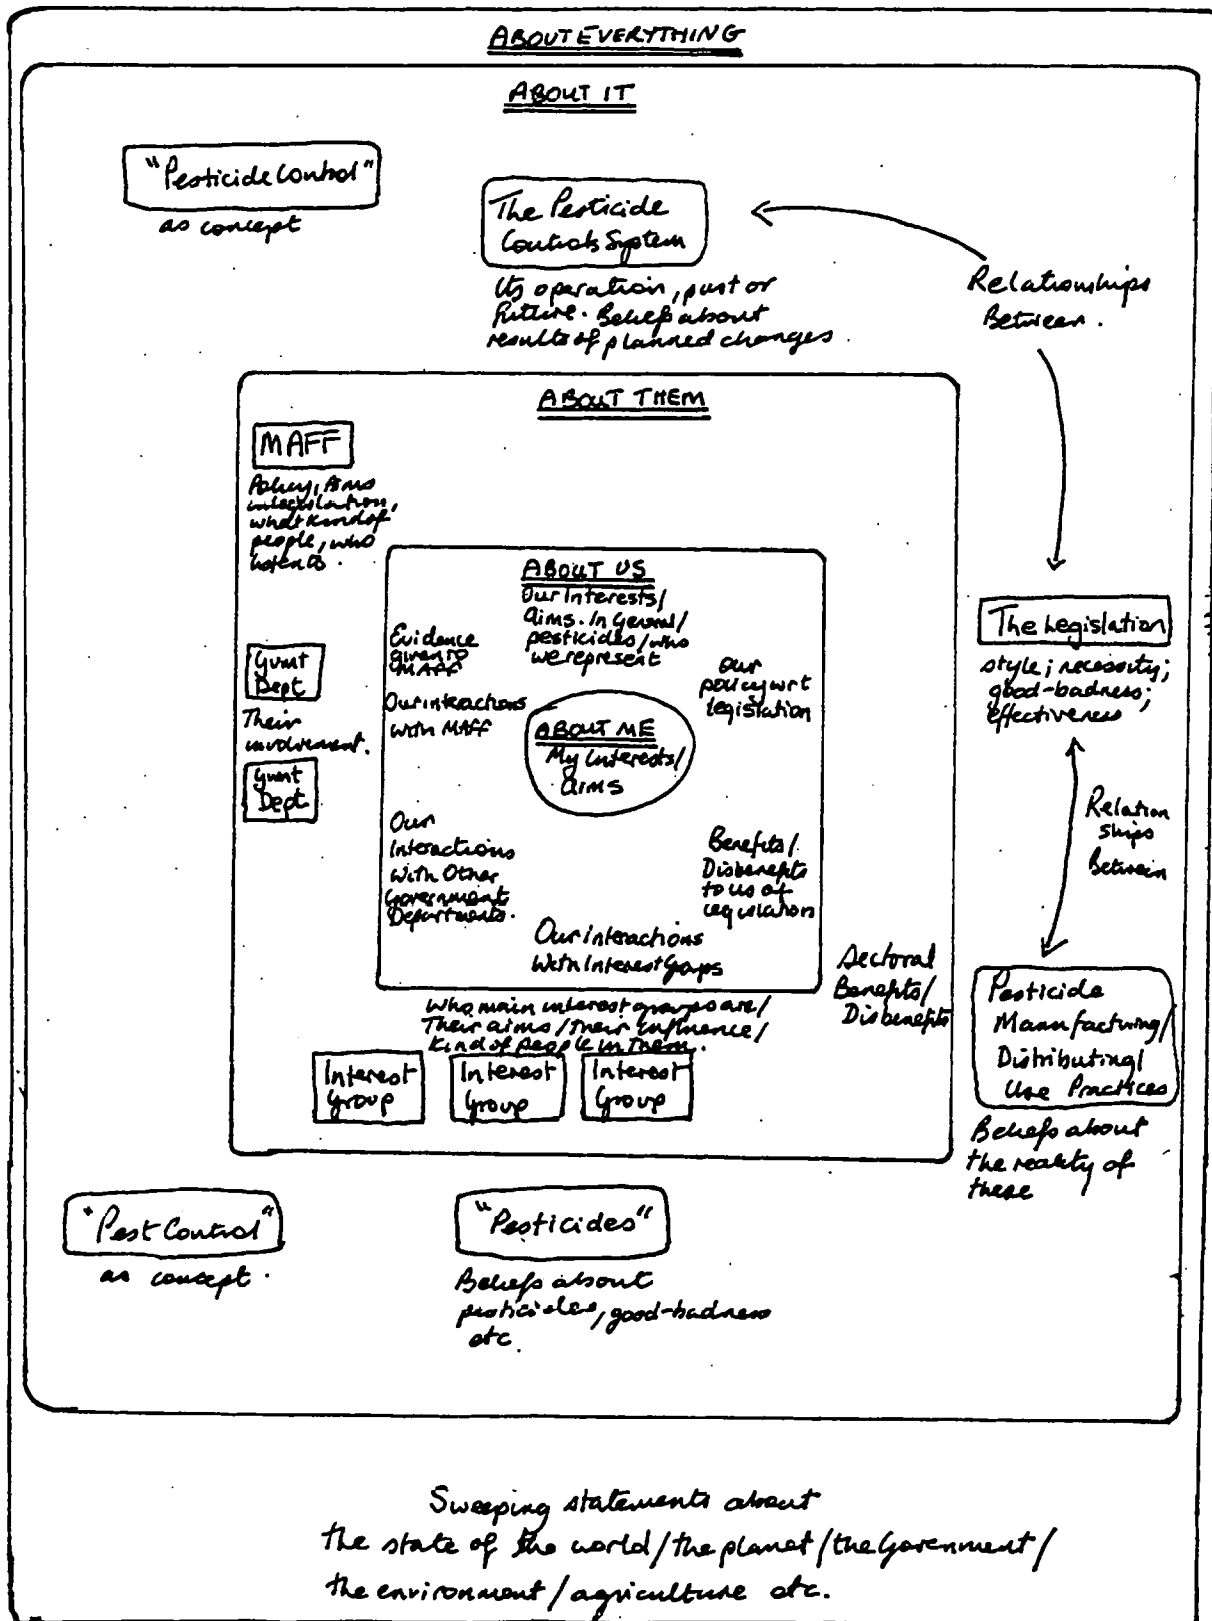 ABOUT EVERYTHING
ABOUT IT
"Pesticide Control"
as concept
The Pesticide
Controls System
Its operation, past or
future. Beliefs about
results of planned changes.
Relationships
Between.
ABOUT THEM
MAFF
Policy, Aims
in legislation,
what kind of
people, who
listen to.
Gvmt
Dept
Their
involvement.
Gvmt
Dept
ABOUT US
Our Interests/
aims. In General/
pesticides/who
we represent
Evidence
given to
MAFF
Our interactions
with MAFF
Our
policy wrt
legislation
ABOUT ME
My Interests/
aims
Our
Interactions
with Other
Government
Departments.
Benefits/
Disbenefits
to us of
legislation
Our interactions
With Interest Groups
Sectoral
Benefits/
Disbenefits
Who main interest groups are/
Their aims/their influence/
Kind of people in them.
Interest
Group
Interest
Group
Interest
Group
The Legislation
style; necessity;
good-badness;
effectiveness
Relation
ships
Between
Pesticide
Manufacturing/
Distributing/
Use Practices
Beliefs about
the reality of
these
"Pest Control"
as concept.
"Pesticides"
Beliefs about
pesticides, good-badness
etc.
Sweeping statements about
the state of the world/the planet/the Government/
the environment/agriculture etc.